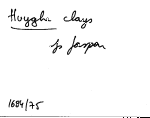 Huyghe clays
fs Jaspar
1684/75